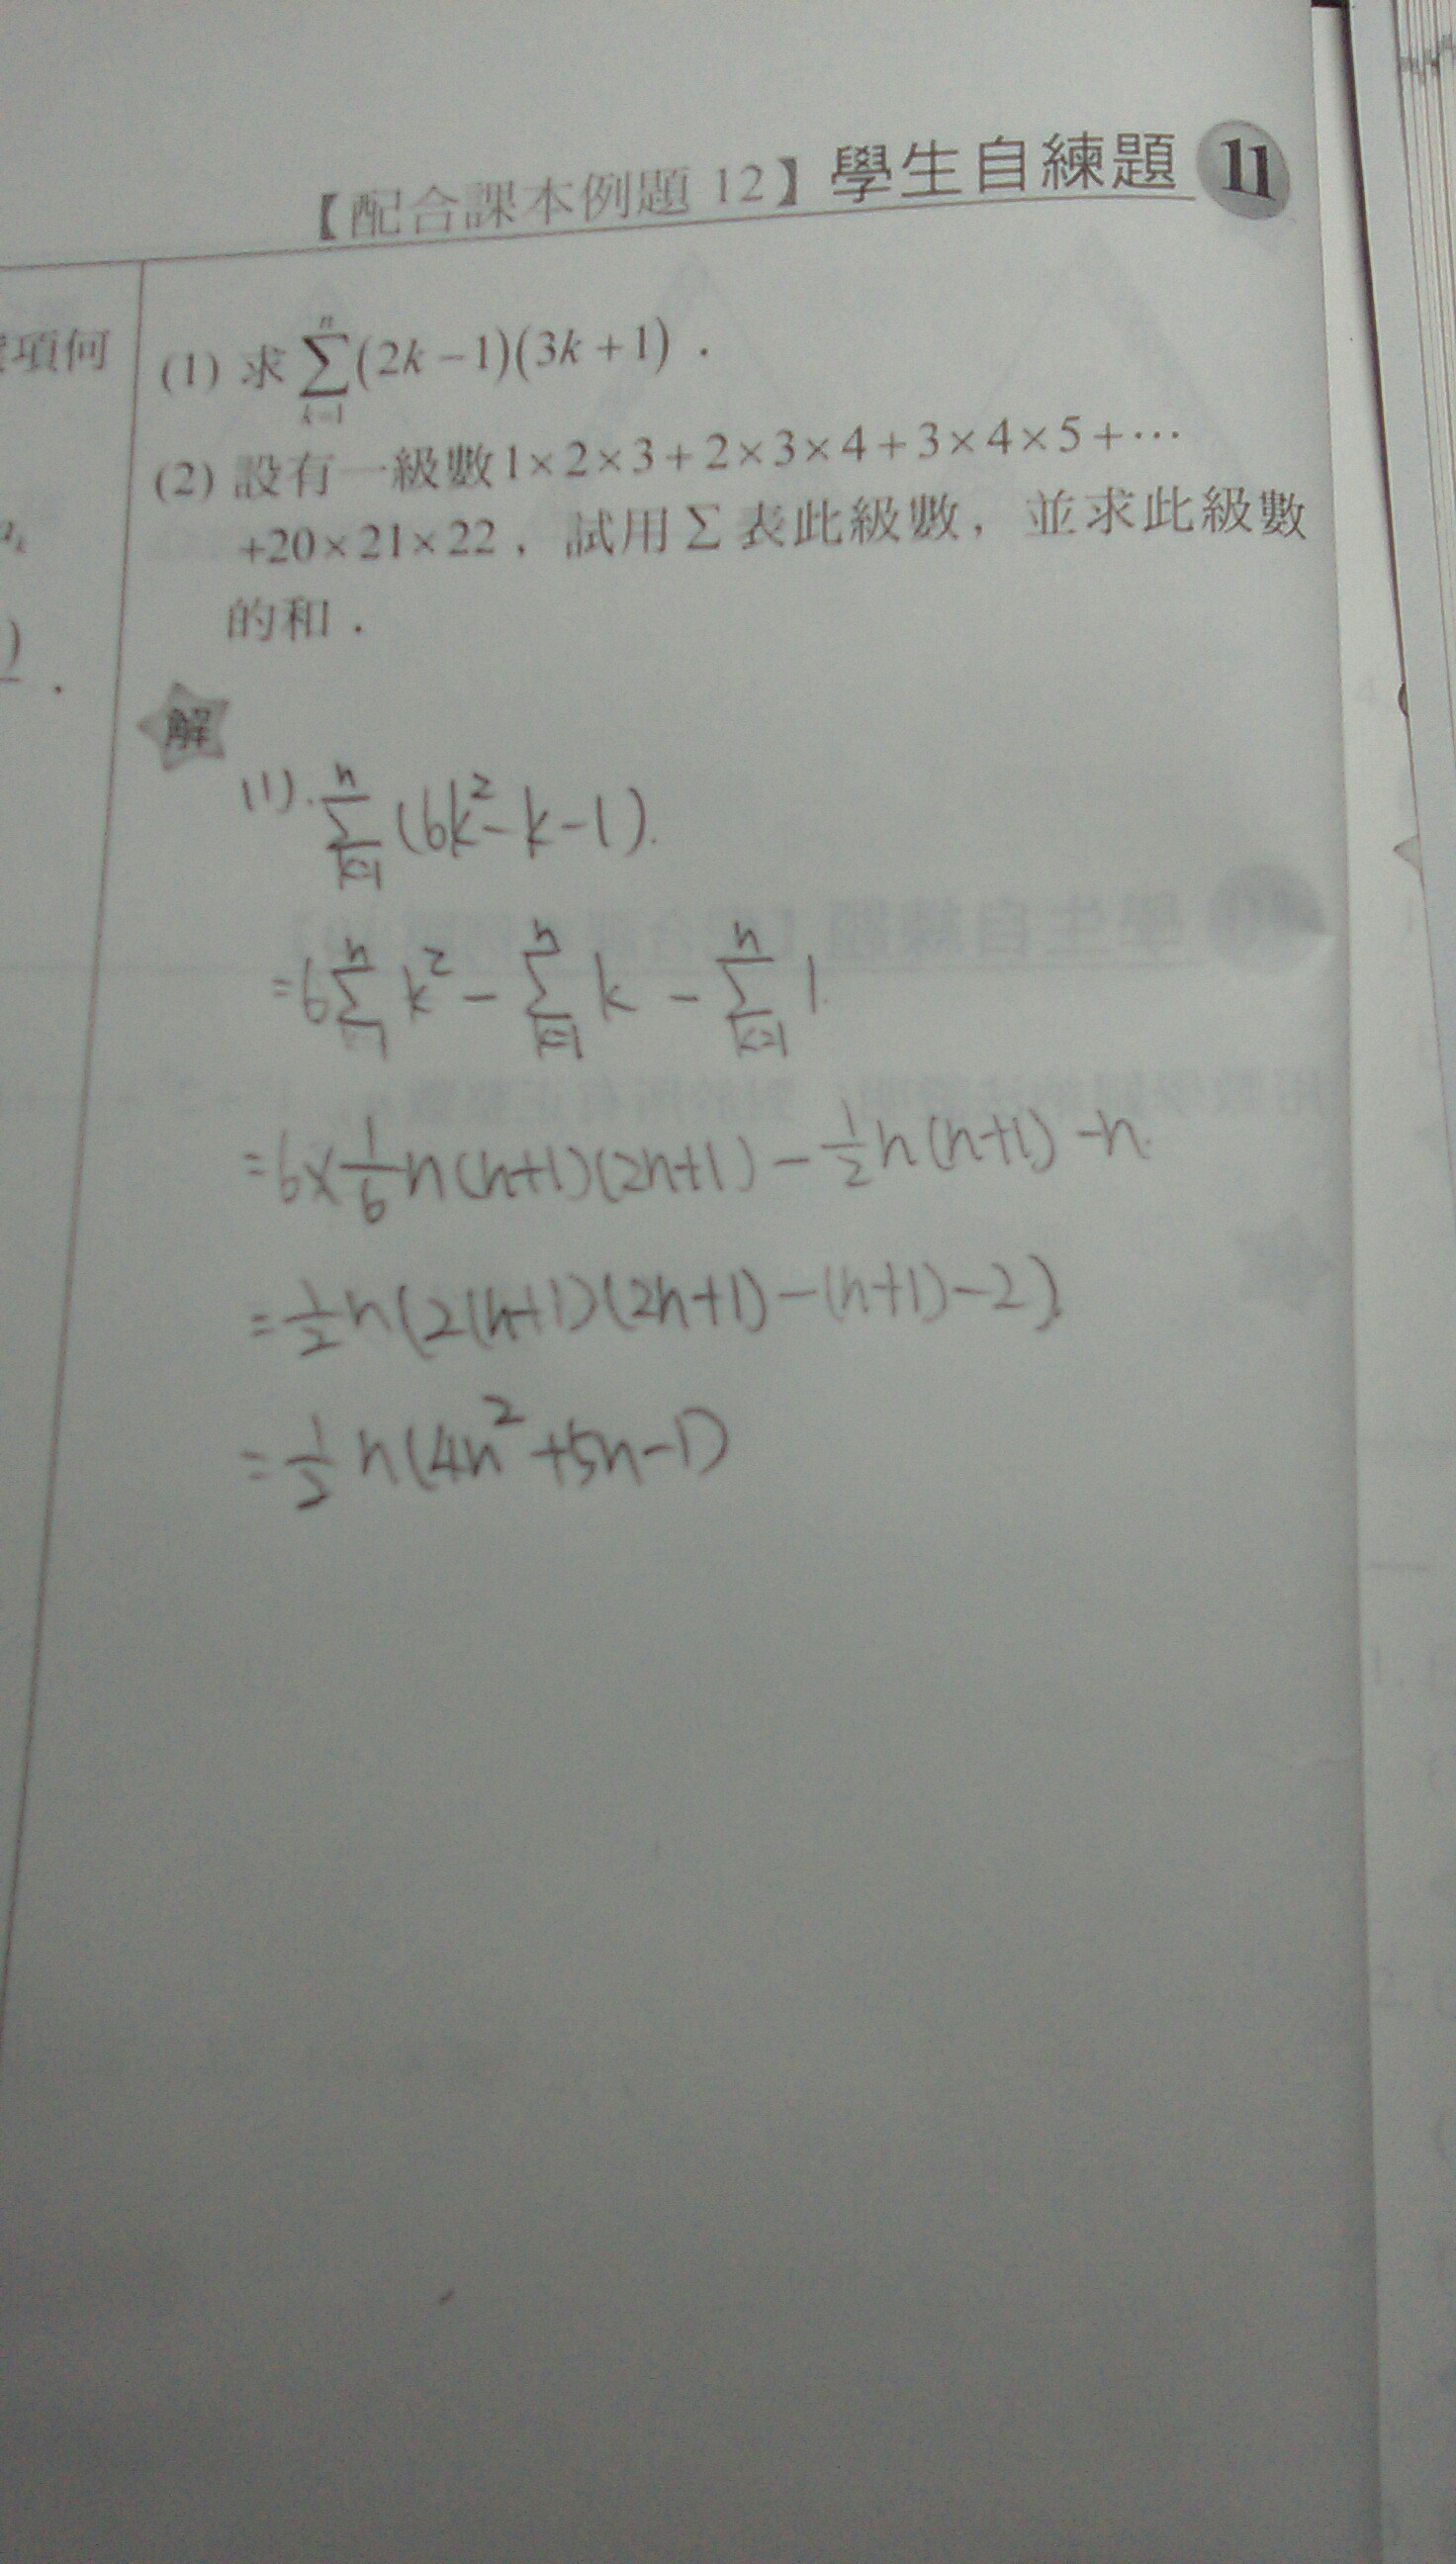 【配合課本例題 12】學生自練題 11
項何
(1) 求 \sum_{k=1}^{n}(2k-1)(3k+1).
(2) 設有一級數1×2×3+2×3×4+3×4×5+⋯
+20×21×22，試用Σ表此級數，並求此級數
的和.
解
(1). \sum_{k=1}^{n}(6k²-k-1).
=6\sum^{n} k² - \sum_{k=1}^{n} k - \sum_{k=1}^{n} 1.
=6×\frac{1}{6}n(n+1)(2n+1) - \frac{1}{2}n(n+1) - n.
=\frac{1}{2}n(2(n+1)(2n+1)-(n+1)-2).
=\frac{1}{2}n(4n²+5n-1)